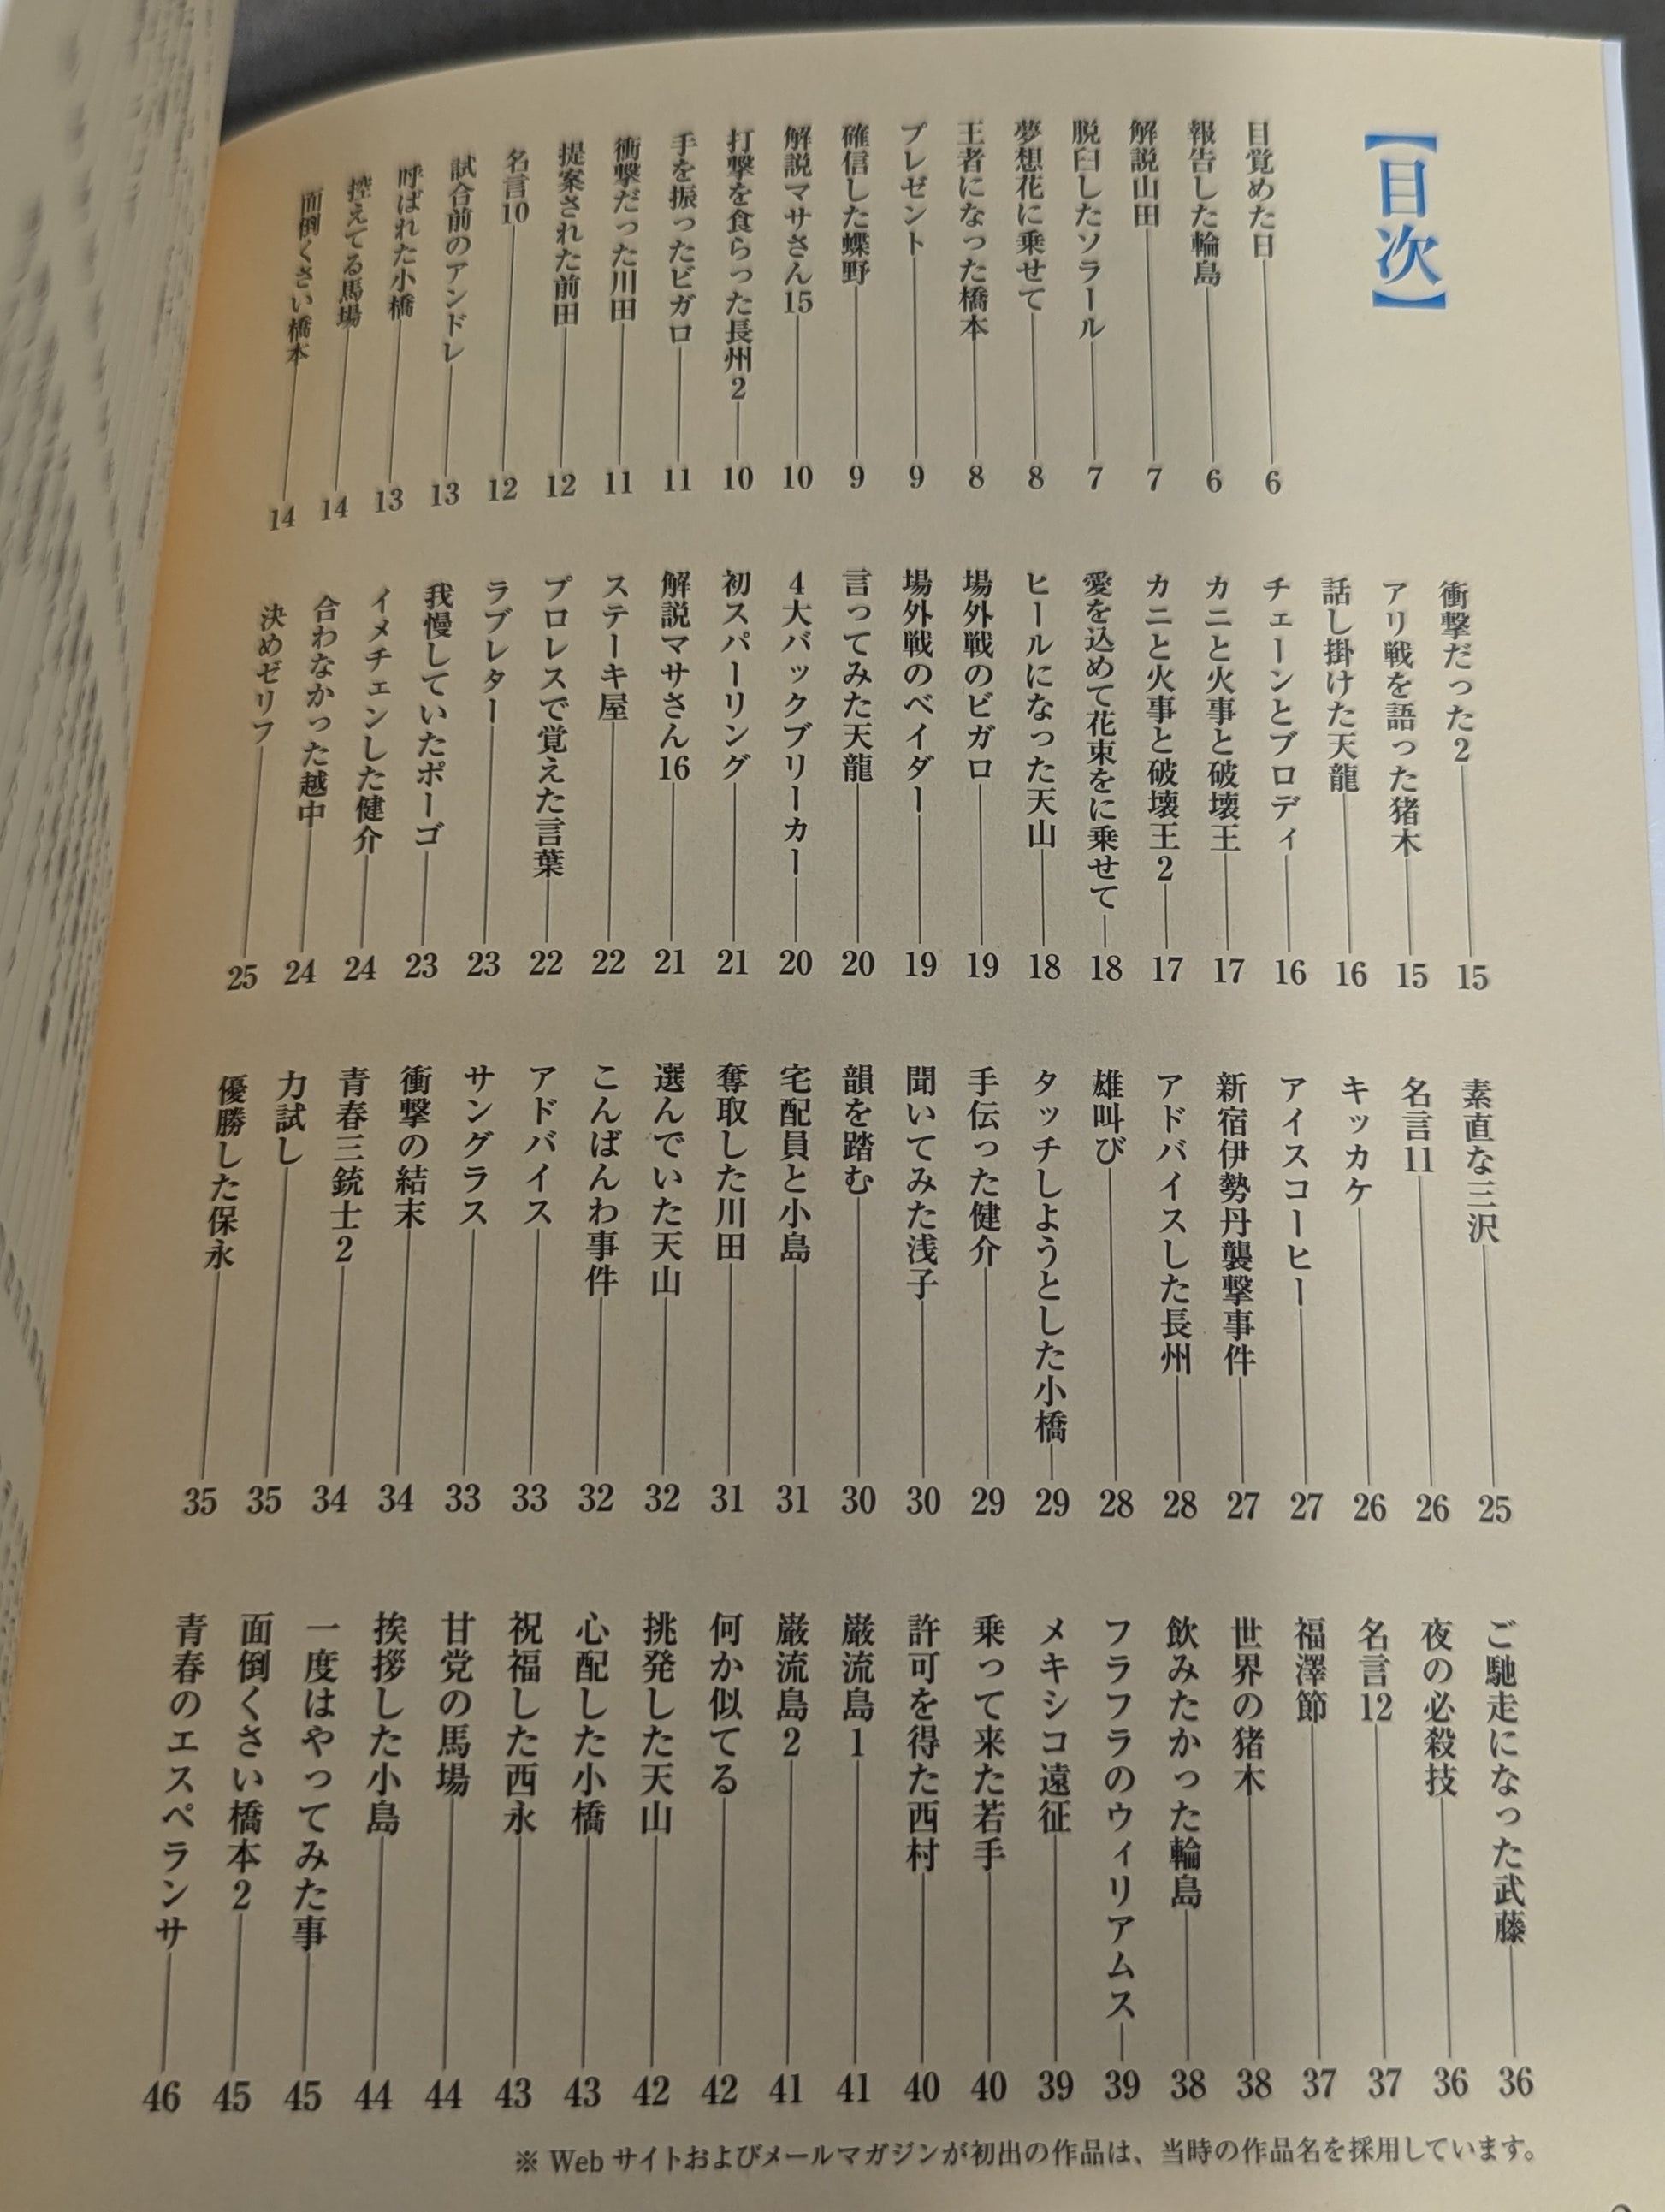 【目次】
目覚めた日 6
報告した輪島 6
解説山田 7
脱臼したソラール 7
夢想花に乗せて 8
王者になった橋本 8
プレゼント 9
確信した蝶野 9
解説マサさん15 10
打撃を食らった長州2 10
手を振ったビガロ 11
衝撃だった川田 11
提案された前田 12
名言10 12
試合前のアンドレ 13
呼ばれた小橋 13
控えてる馬場 14
面倒くさい橋本 14
衝撃だった2 15
アリ戦を語った猪木 15
話し掛けた天龍 16
チェーンとブロディ 16
カニと火事と破壊王 17
カニと火事と破壊王2 17
愛を込めて花束をに乗せて 18
ヒールになった天山 18
場外戦のビガロ 19
場外戦のベイダー 19
言ってみた天龍 20
4大バックブリーカー 20
初スパーリング 21
解説マサさん16 21
ステーキ屋 22
プロレスで覚えた言葉 22
ラブレター 23
我慢していたポーゴ 23
イメチェンした健介 24
合わなかった越中 24
決めゼリフ 25
素直な三沢 25
名言11 26
キッカケ 26
アイスコーヒー 27
新宿伊勢丹襲撃事件 27
アドバイスした長州 28
雄叫び 28
タッチしようとした小橋 29
手伝った健介 29
聞いてみた浅子 30
韻を踏む 30
宅配員と小島 31
奪取した川田 31
選んでいた天山 32
こんばんわ事件 32
アドバイス 33
サングラス 33
衝撃の結末 34
青春三銃士2 34
力試し 35
優勝した保永 35
ご馳走になった武藤 36
夜の必殺技 36
名言12 37
福澤節 37
世界の猪木 38
飲みたかった輪島 38
フラフラのウィリアムス 39
メキシコ遠征 39
乗って来た若手 40
許可を得た西村 40
巌流島1 41
巌流島2 41
何か似てる 42
挑発した天山 42
心配した小橋 43
祝福した西永 43
甘党の馬場 44
挨拶した小島 44
一度はやってみた事 45
面倒くさい橋本2 45
青春のエスペランサ 46
※Webサイトおよびメールマガジンが初出の作品は、当時の作品名を採用しています。